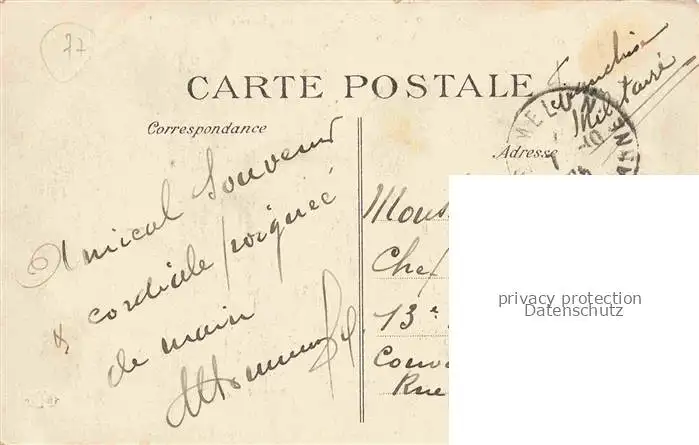 77
CARTE POSTALE
Franchise
Militaire
Correspondance
Adresse
Amical Souvenir
& cordiale poignée
de main
Mons
Chef
13e
Rue
privacy protection
Datenschutz